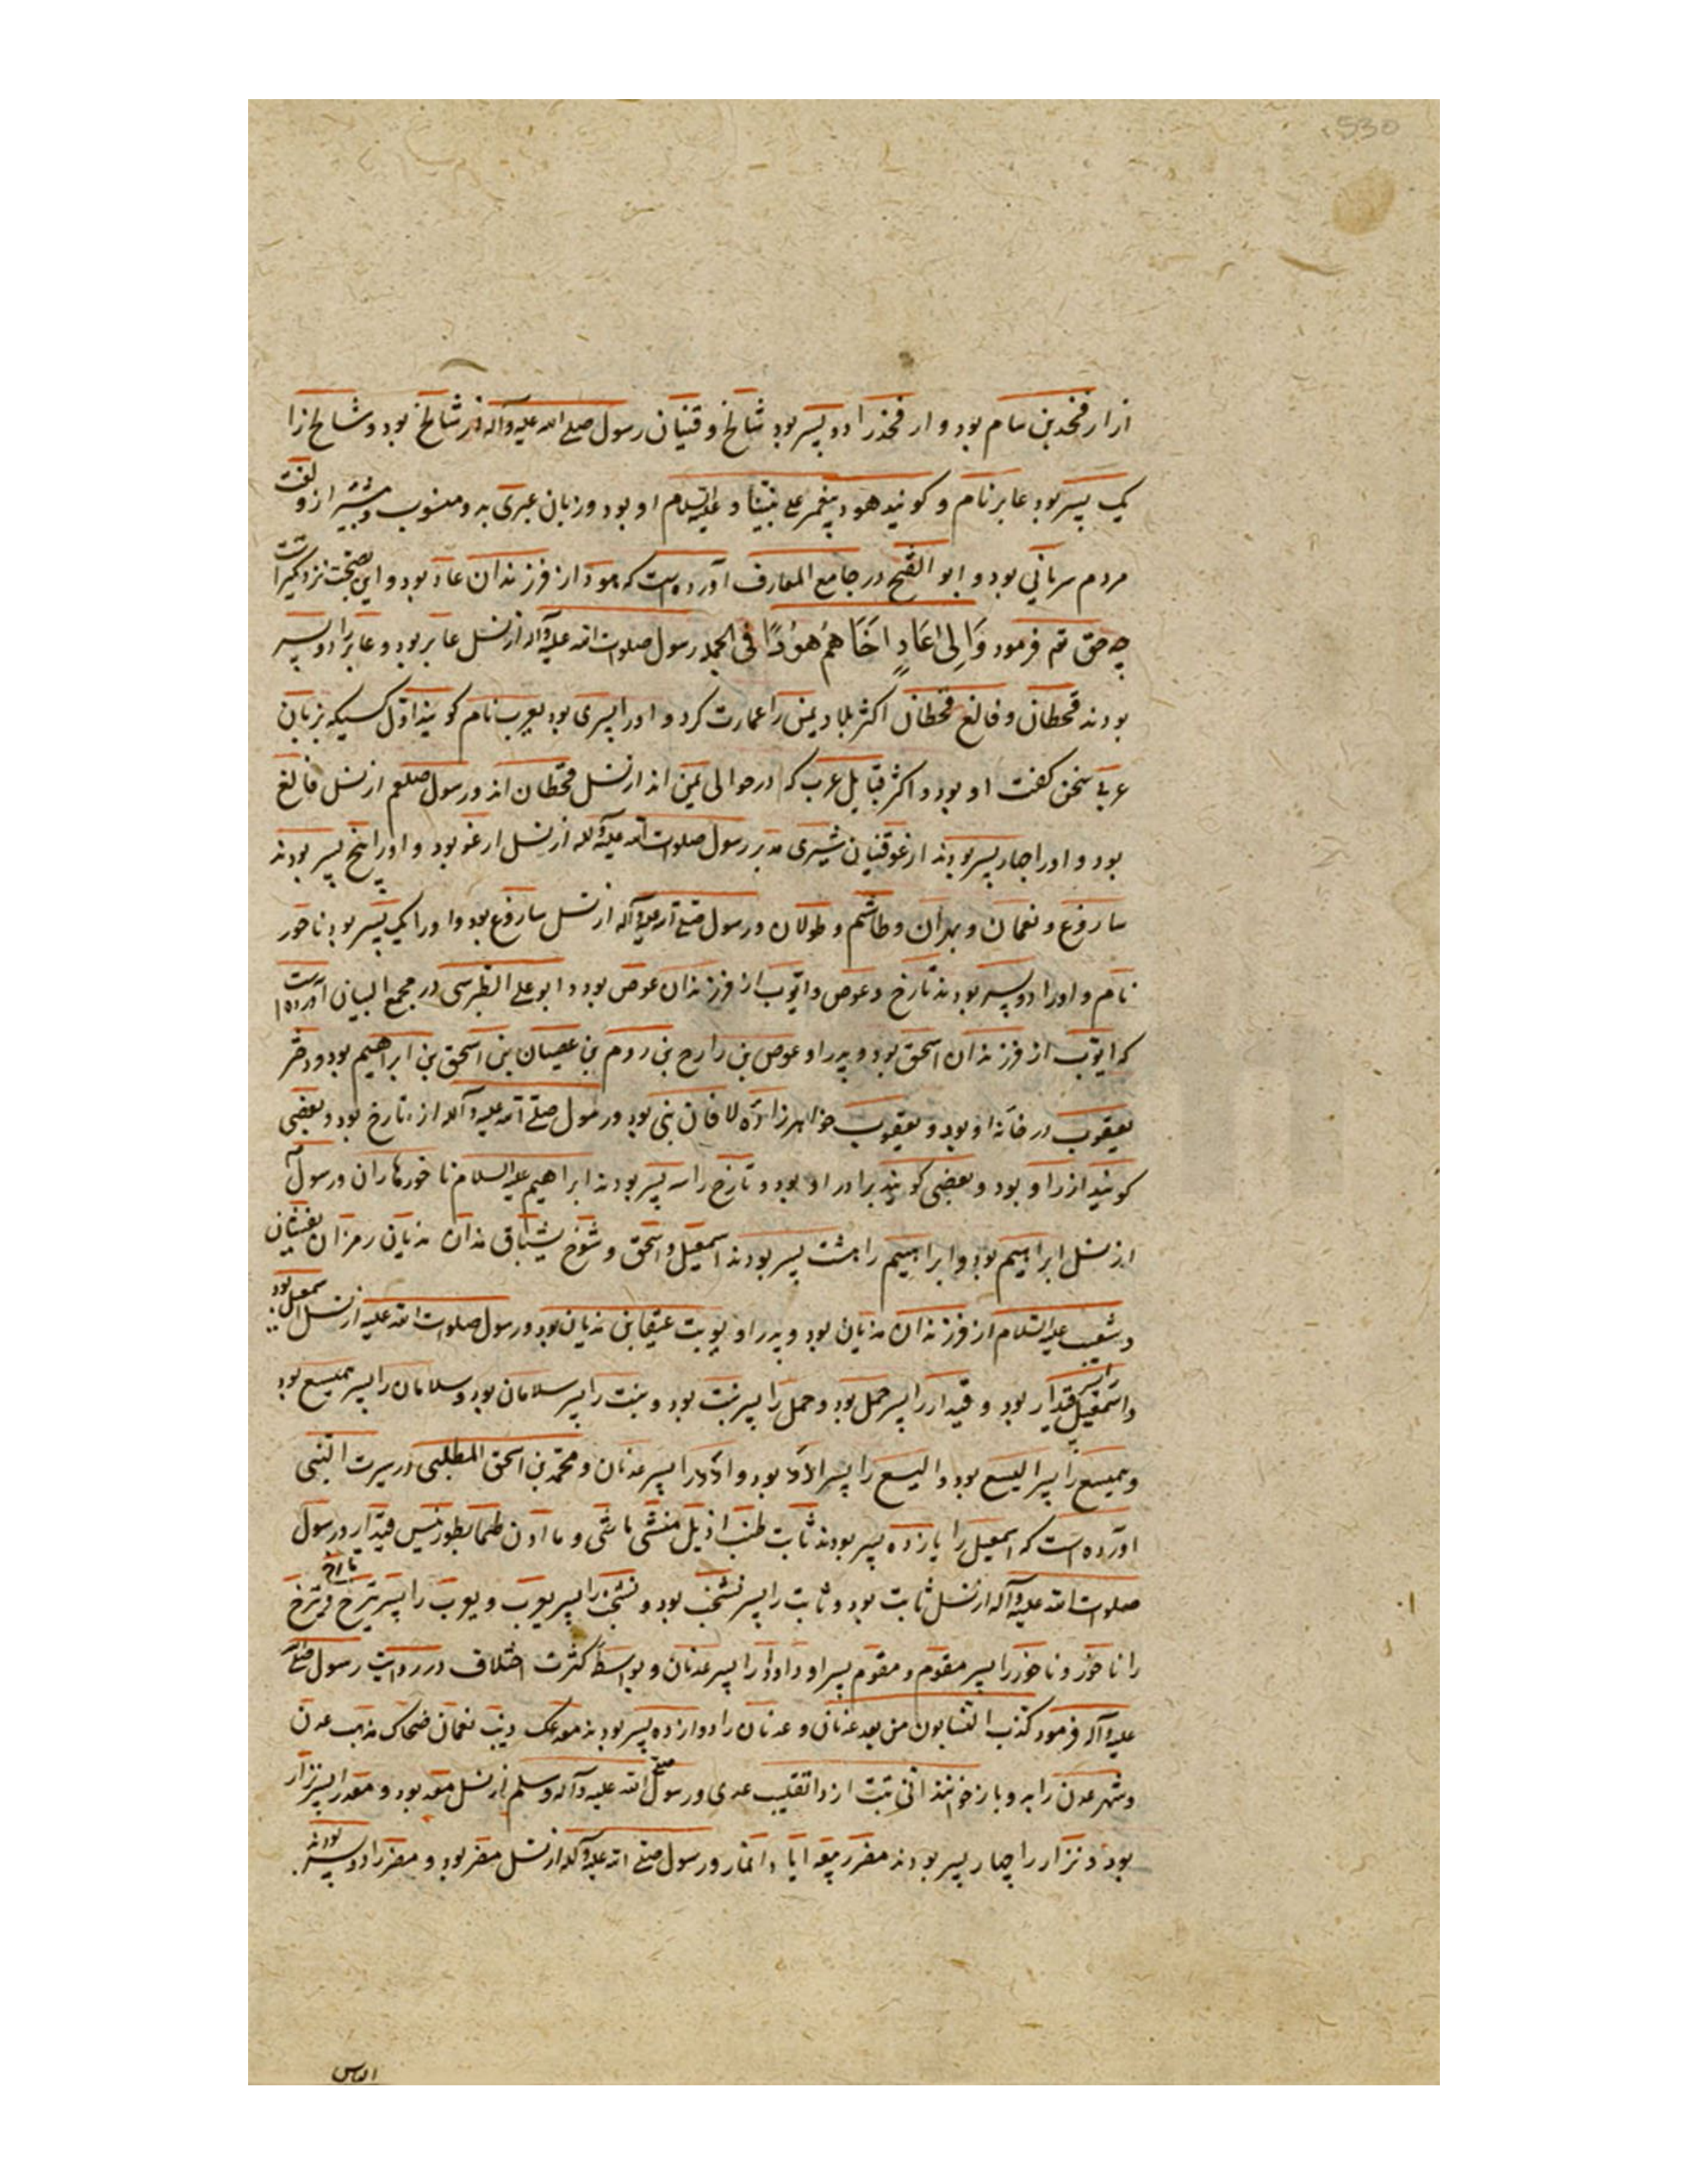 530
از ارفخد بن سام بود و ارفخذ را دو پسر بود شالخ و قنیان رسول صلے الله علیه وآله از شالخ بود و شالخ را
یک پسر بود عابر نام و کویند هود پیغمبر علی نبینا و علیه السلام او بود و زبان عبری بدو منسوب و پیشتر ازو لغت
مردم سریانی بود و ابو الفتح در جامع المعارف آورده است که هود از فرزندان عاد بود و این بصحت نزدیکتر است
چه حق تم فرمود وَاِلىٰ عَادٍ اَخَاهُمْ هُوْدًا فی الجمله رسول صلوات الله علیه وآله از نسل عابر بود و عابر را دو پسر
بودند قحطان و فالغ قحطان اکثر بلاد یمن را عمارت کرد و او را پسری بود یعرب نام کویند اول کسیکه بزبان
عربی سخن کفت او بود و اکثر قبایل عرب که در حوالی یمن اند از نسل قحطان اند و رسول صلعم از نسل فالغ
بود و او را چهار پسر بودند ارغو قنیان شیری مدبر رسول صلوات الله علیه وآله از نسل ارغو بود و او را پنج پسر بودند
ساروغ و نعمان و بهدان و طاشم و طولان و رسول صلے الله علیه وآله از نسل ساروغ بود و او را یک پسر بود ناخور
نام و او را دو پسر بودند تارخ و عوص و ایوب از فرزندان عوص بود و ابو علی الطبرسی در مجمع البیان آورده است
که ایوب از فرزندان اسحق بود و پدر او عوص بن رارح بن روم بن عیصان بن اسحق بن ابراهیم بود و دختر
یعقوب در خانه او بود و یعقوب خواهرزاده لافان بنی بود و رسول صلے الله علیه وآله از تارخ بود و بعضی
کویند ازر او بود و بعضی کویند برادر او بود و تارخ را سه پسر بودند ابراهیم علیه السلام ناخور هاران و رسول
از نسل ابراهیم بود و ابراهیم را هشت پسر بودند اسمعیل و اسحق و شوخ یشباق مدان مدیان زمران یفشان
و شعیب علیه السلام از فرزندان مدیان بود و پدر او یوبت عیقا بن مدیان بود و رسول صلوات الله علیه از نسل اسمعیل بود
و اسمعیل را پسر قیدار بود و قیدار را پسر حمل بود و حمل را پسر نبت بود و نبت را پسر سلامان بود و سلامان را پسر همیسع بود
و همیسع را پسر الیسع بود و الیسع را پسر الادد بود و الادد را پسر عدنان و محمد بن اسحق المطلبی در سیرت النبی
آورده است که اسمعیل را یازده پسر بودند ثابت طنب اذیل منشی ماشی و ما ادن طما یطور نیس قیدار و رسول
صلوات الله علیه وآله از نسل ثابت بود و ثابت را پسر نشخب بود و نشخب را پسر یعرب و یعرب را پسر تیرخ و تیرخ تارخ
را ناخور و ناخور را پسر مقوم و مقوم پسر او د اود را پسر عدنان و بواسطهٔ کثرت اختلاف در روایت رسول صلے الله
علیه وآله فرمود کذب النسابون من بعد عدنان و عدنان را دوازده پسر بودند معد عک دیب نعمان ضحاک مذهب عدن
و شهر عدن را به و باز خوانند اتی نبت ازد اتقلیب عدی و رسول صلے الله علیه وآله وسلم از نسل معد بود و معد را پسر نزار
بود و نزار را چهار پسر بودند مضر ربیعه ایاد انمار و رسول صلے الله علیه وآله از نسل مضر بود و مضر را دو پسر بودند
الیاس